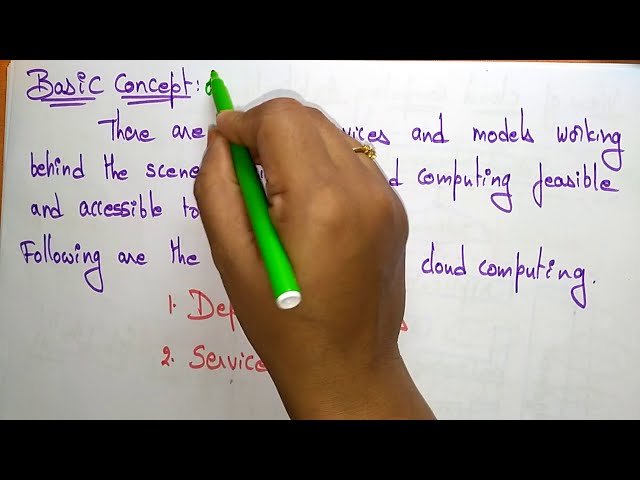 Basic Concept:
There are vices and models working
behind the scene d computing feasible
and accessible to
Following are the cloud computing.
1. Dep s
2. Service